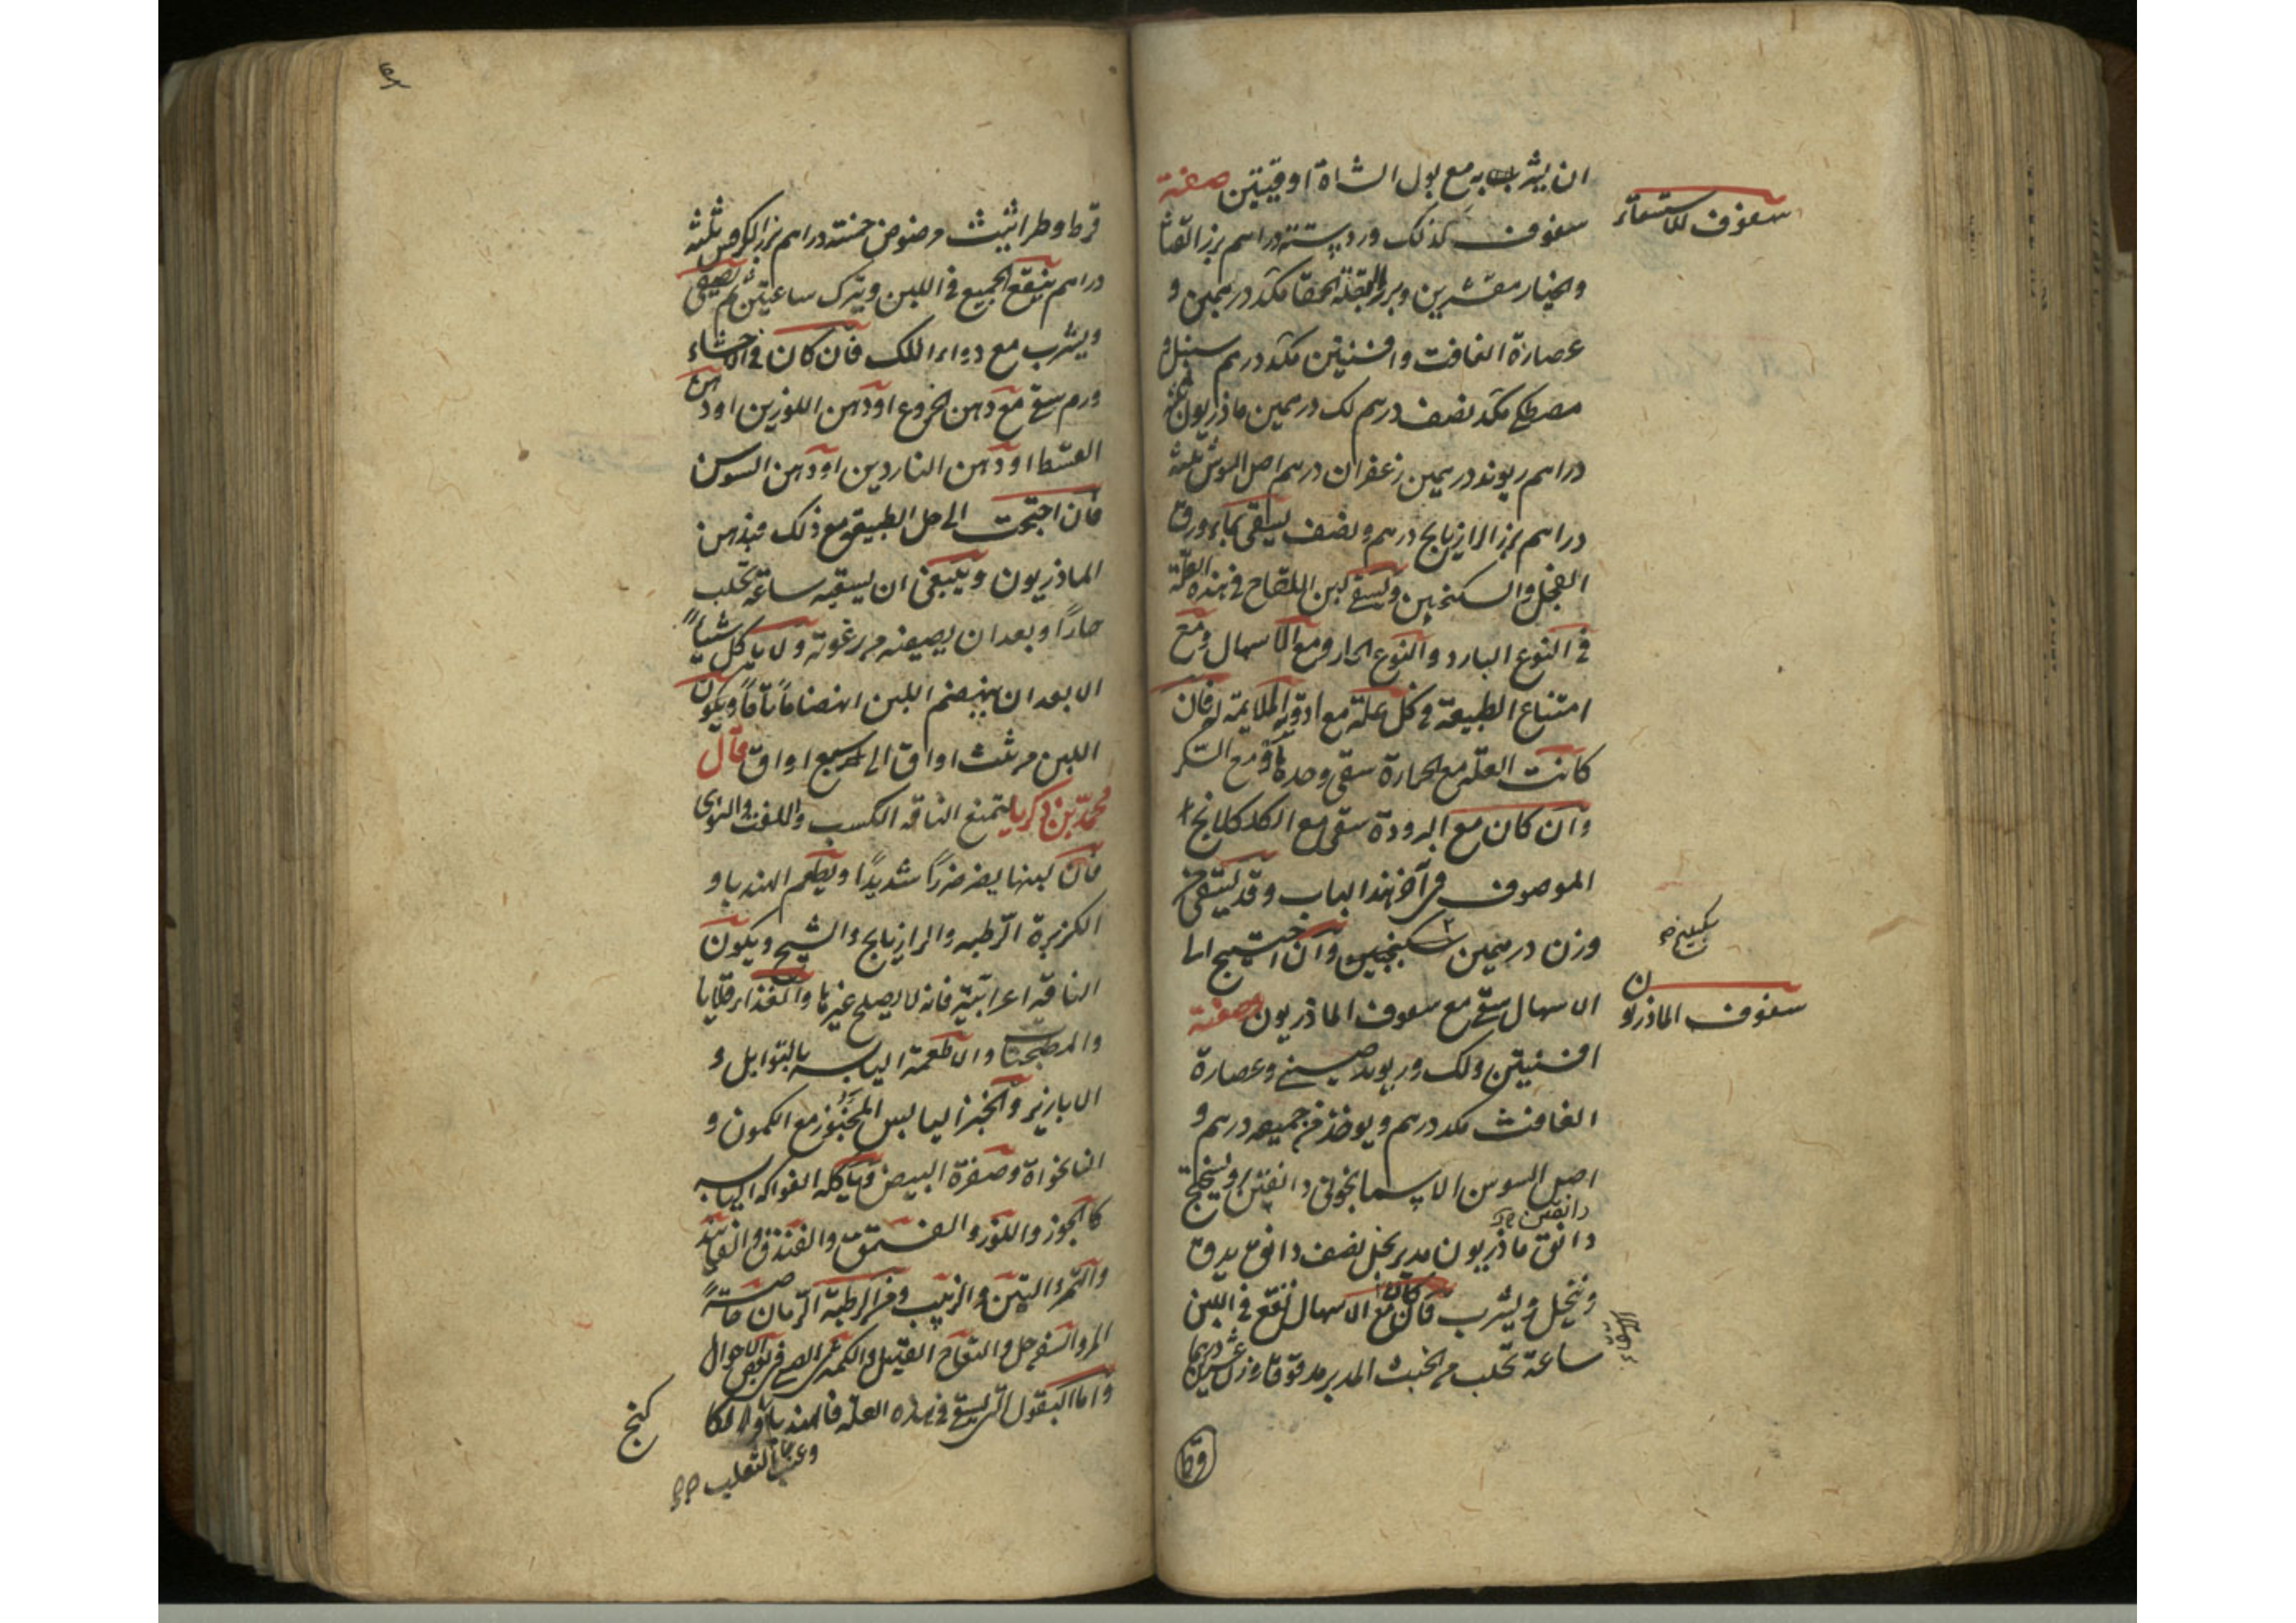 ان يشرب به مع بول الشاة اوقيتين صفة
سفوف للاستسقاء
سفوف كذلك ورد ستة دراهم بزر القثا
والخيار مقشرين وبزر البقلة الحمقا مكد درهمين و
عصارة الغافت وافسنتين مكد درهم سنبل و
مصطكى مكد نصف درهم لك درهمين ماذريون
دراهم ريوند درهمين زعفران درهم اصل السوس ثلثة
دراهم بزر الرازيانج درهم ونصف يسقى بماء ورق
الفجل والسكنجبين ويسقى لبن اللقاح في هذه العلة
في النوع البارد والنوع الحار ومع الاسهال ومع
امتناع الطبيعة في كل علة مع ادوية الملايمة له فان
كانت العلة مع الحرارة سقى وحدة او مع السكر
وان كان مع البرودة سقى مع الكلكلانج
الموصوف في آخر هذا الباب وقد يسقى
وزن درهمين سكبينج وان احتيج الى
سكبينج
الاسهال سقى مع سفوف الماذريون صفة
سفوف الماذريون
افسنتين ولك وريوند صينى وعصارة
الغافث مكد درهم ويوخذ من جميعه درهم و
اصل السوس الاسمانجونى دانقين
دانقين
دانق ماذريون مدبر بخل نصف دانق يدق
وينخل ويشرب فان كان مع الاسهال نقع في اللبن
ساعة تحلب من الخبث المدبر مدقوقا وزن عشرين درهما
قرط وطراثيث مرضوض خمسة دراهم بزر الكرفس ثلثة
دراهم ينقع الجميع في اللبن ويترك ساعتين ثم يصفى
ويشرب مع دواء اللك فان كان في الاحشاء
ورم سقى مع دهن الخروع او دهن اللوزين او دهن
القسط او دهن الناردين او دهن السوسن
فان احتجت الى حل الطبيعة مع ذلك فبدهن
الماذريون وينبغى ان يسقيه ساعة تحلب
حارًا وبعد ان يصفيه من رغوته ولا ياكل شيئًا
الا بعد ان ينهضم اللبن انهضامًا تامًا ويكون
اللبن من ثلث اواق الى سبع اواق قال
محمد بن زكريا ليمنع الناقة الكسب والقت والنوى
فان لبنها يضر ضررًا شديدًا ويطعم الهندبا و
الكزبرة الرطبه والرازيانج والشيح ويكون
الناقة اعرابية فانه لا يصلح غيرها والغذاء قلايا
والمطجنات والاطعمة اليابسه بالتوابل و
الابازير والخبز اليابس المخبوز مع الكمون و
النانخواة وصفرة البيض وياكل الفواكه اليابسه
كالجوز واللوز والفستق والفندق والفانيد
والتمر والتين والزبيب ومن الرطبة الرمان خاصة
المز والسفرجل والتفاح القليل والكمثرى الصينى في بعض الاحوال
واما البقول التى يسقى في هذه العلة فالهندبا
وعنب الثعلب
كنج